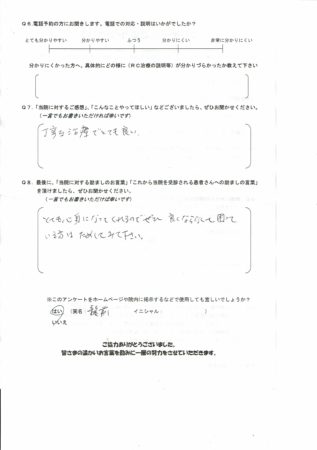 Q6.電話予約の方にお聞きします。電話での対応・説明はいかがでしたか?
とても分かりやすい　分かりやすい　ふつう　分かりにくい　非常に分かりにくい
分かりにくかった方へ、具体的にどの様に（ＲＣ治療の説明等）が分かりづらかったか教えて下さい
Q7.「当院に対するご感想」、「こんなことやってほしい」などございましたら、ぜひお聞かせください。
（一言でもお書きいただければ幸いです）
丁寧な治療でとても良い。
Q8. 最後に、「当院に対する励ましのお言葉」「これから当院を受診される患者さんへの励ましの言葉」
を頂けましたら、ぜひお聞かせください。
（一言でもお書きいただければ幸いです）
とても心身になってくれるのでぜひ 良くならなくて困って
いる方は ためしてみて下さい。
※このアンケートをホームページや院内に掲示するなどで使用しても宜しいでしょうか?
はい　（実名：　イニシャル：　）
いいえ
ご協力ありがとうございました。
皆さまの温かいお言葉を励みに一層の努力をさせていただきます。